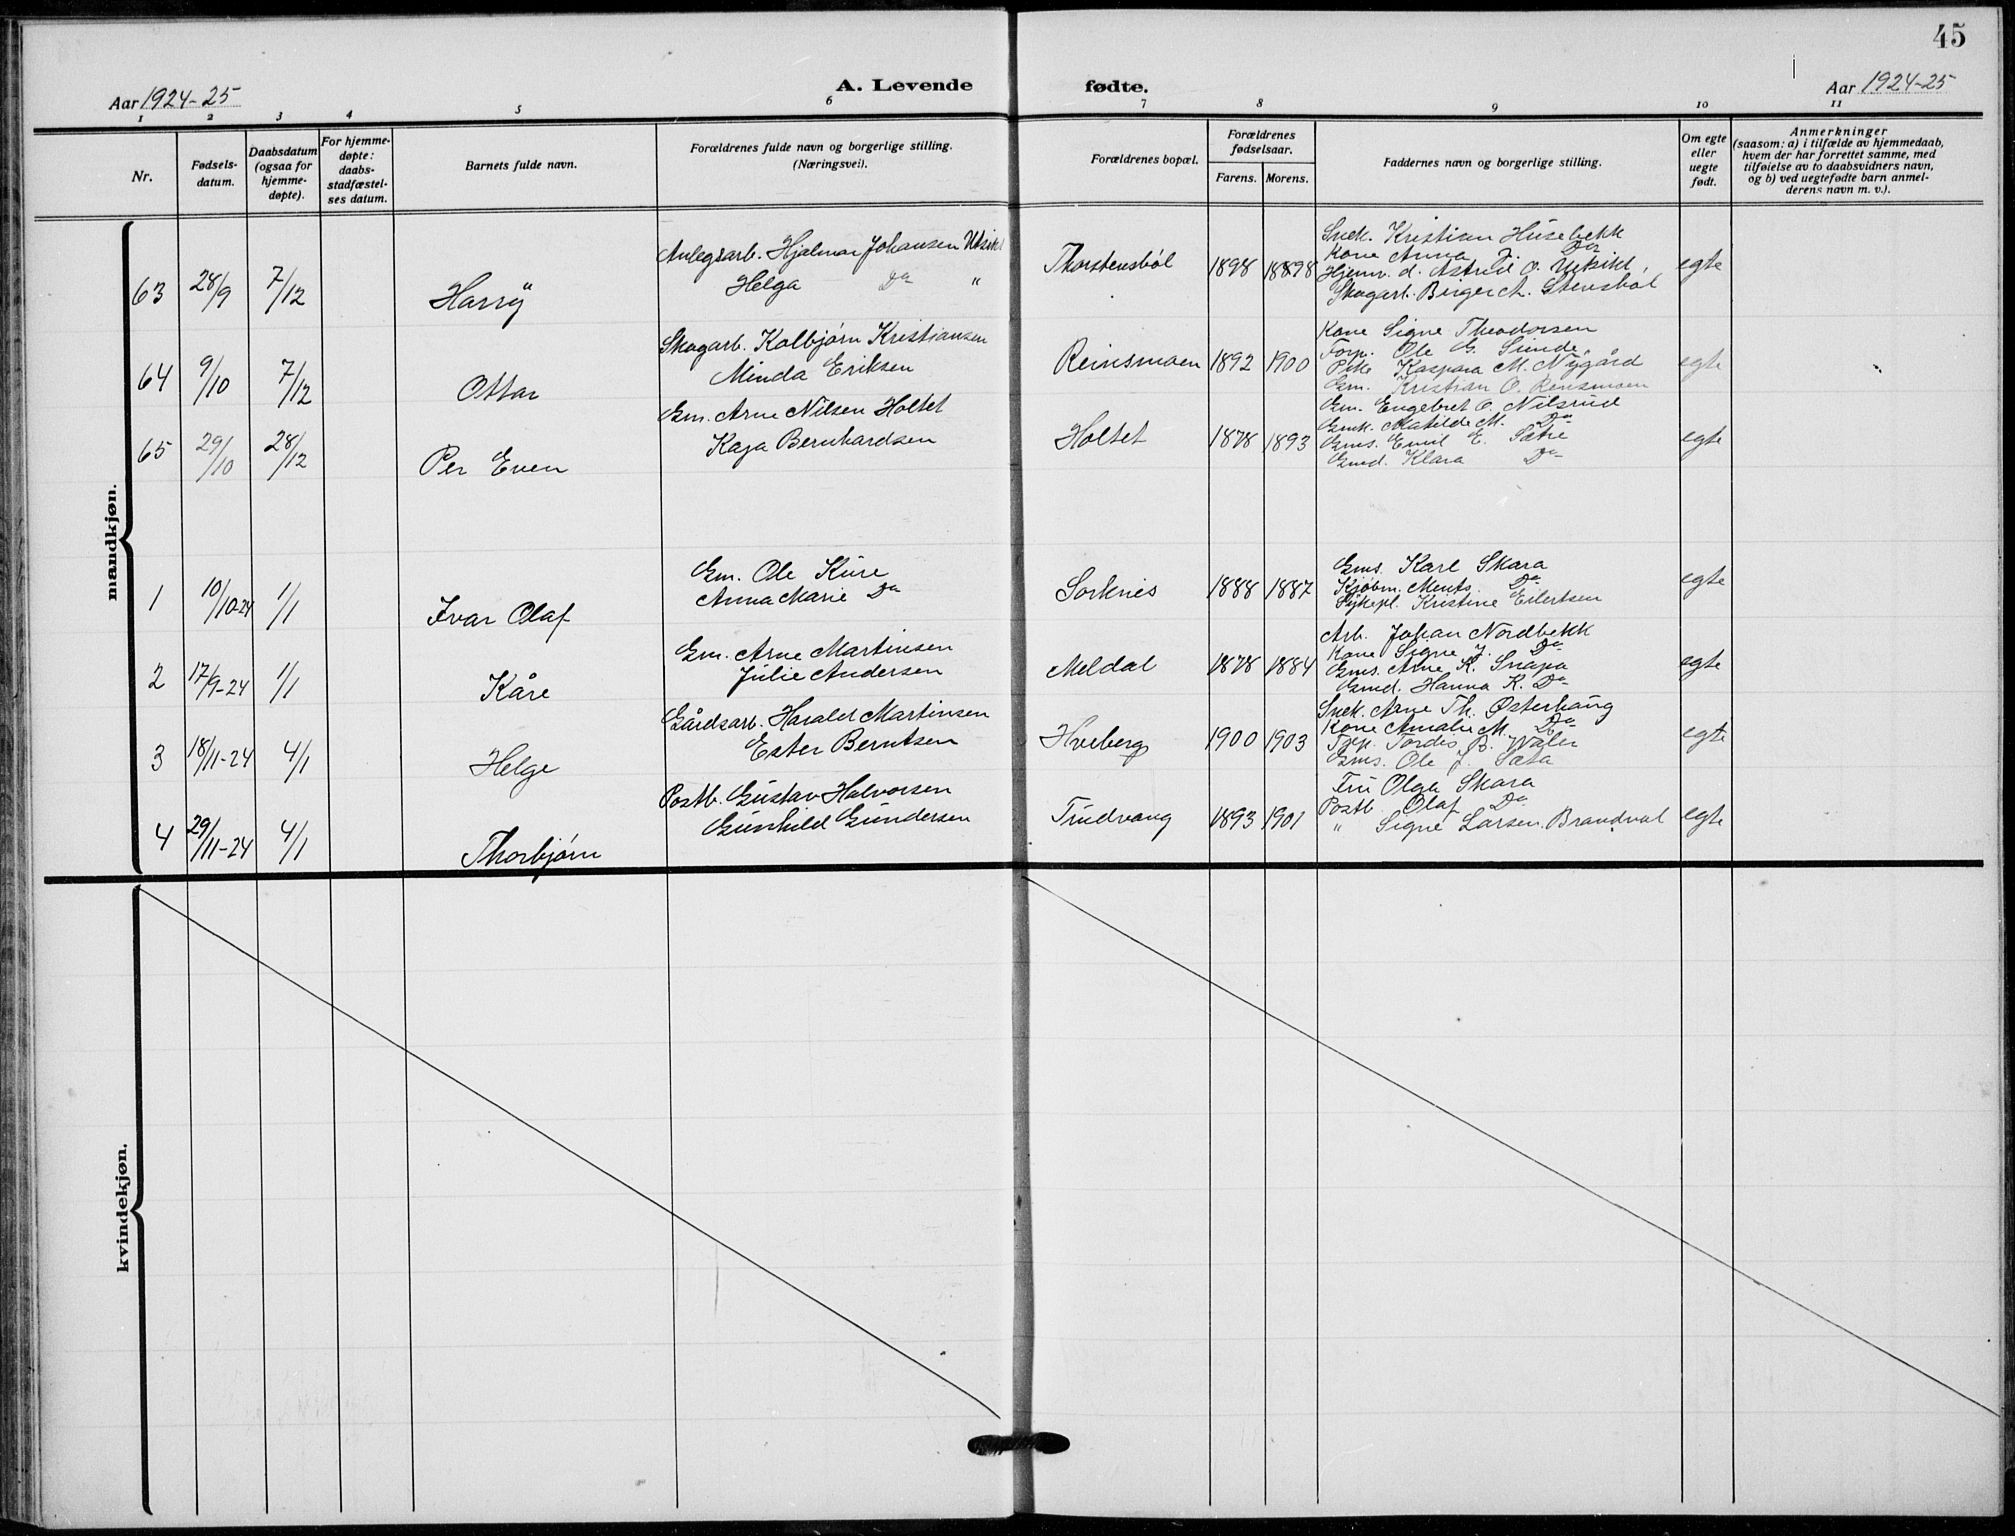 45
Aar 1924-25
A. Levende fødte.
Aar 1924-25
1 2 3 4 5 6 7 8 9 10 11
Nr.
Fødsels-
datum.
Daabsdatum
(ogsaa for
hjemme-
døpte).
For hjemme-
døpte:
daabs-
stadfæstel-
ses datum.
Barnets fulde navn.
Forældrenes fulde navn og borgerlige stilling.
(Næringsvei).
Forældrenes bopæl.
Forældrenes
fødselsaar.
Farens. Morens.
Faddernes navn og borgerlige stilling.
Om egte
eller
uegte
født.
Anmerkninger
(saasom: a) i tilfælde av hjemmedaab,
hvem der har forrettet samme, med
tilføielse av to daabsvidners navn,
og b) ved uegtefødte barn anmel-
derens navn m. v.).
mandkjøn.
63 28/9 7/12 Harry
Anlegsarb. Hjalmar Johansen Utsikt
Helga Do "
Thorstensbøl 1898 1898
Snek. Kristian Husebekk
Kone Anna J. Do
Hjemv. d. Astrid O. Utsikt,
Skogarb. Birger A. Stensbøl
egte
64 9/10 7/12 Ottar
Skogarb. Kolbjørn Kristiansen
Minda Eriksen
Reinsmoen 1892 1900
Kone Signe Theodorsen
Forp. Ole G. Sunde,
Pike Kaspara M. Nygård
Gm. Kristian O. Reinsmoen
egte
65 29/10 28/12 Per Even
Gm. Arne Nilsen Holtet
Kaja Bernhardsen
Holtet 1878 1893
Gm. Engebret O. Nilsrud
Gmk. Matilde M. Do
Gms. Emil E. Sætre
Gmd. Klara Do
egte
1 10/10-24 1/1 Ivar Olaf
Gm. Ole Kure
Anna Marie Do
Sorknes 1888 1887
Gms. Karl Skara
Kjøbm. Ments Do
Sykepl. Kristine Eilertsen
egte
2 17/9-24 1/1 Kåre
Gm. Arne Martinsen
Julie Andersen
Meldal 1878 1884
Arb. Johan Nordbekk
Kone Signe J. Do
Gms. Arne K. Snapa
Gmd. Hanna K. Do
egte
3 18/11-24 4/1 Helge
Gårdsarb. Harald Martinsen
Ester Berntsen
Hveberg 1900 1903
Snek. Arne Th. Østerhaug
Kone Amalie M. Do
Tordis B. Våler
Gms. Ole J. Sæta
egte
4 29/11-24 4/1 Thorbjørn
Postb. Gustav Halvorsen
Gunhild Gundersen
Trudvang 1893 1901
Fru Olga Skara
Postb. Olaf Do
" Signe Larsen. Brandval
egte
kvindekjøn.